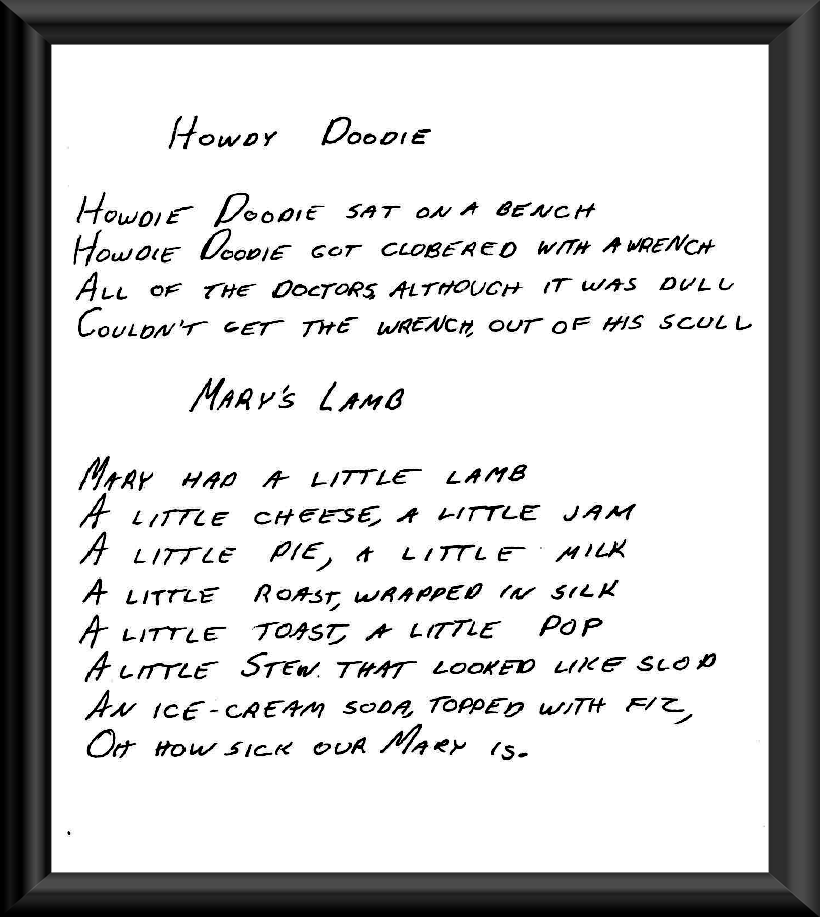 Howdy Doodie
Howdie Doodie sat on a bench
Howdie Doodie got clobered with a wrench
All of the doctors, although it was dull
Couldn't get the wrench, out of his scull
Mary's Lamb
Mary had a little lamb
A little cheese, a little jam
A little pie, a little milk
A little roast, wrapped in silk
A little toast, a little pop
A little stew. that looked like slop
An ice-cream soda, topped with fiz,
Oh how sick our Mary is.